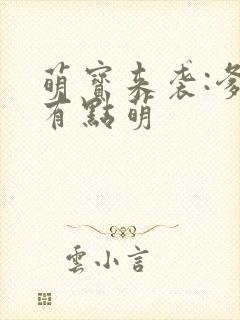 萌寶來襲:
有點萌
雲小言